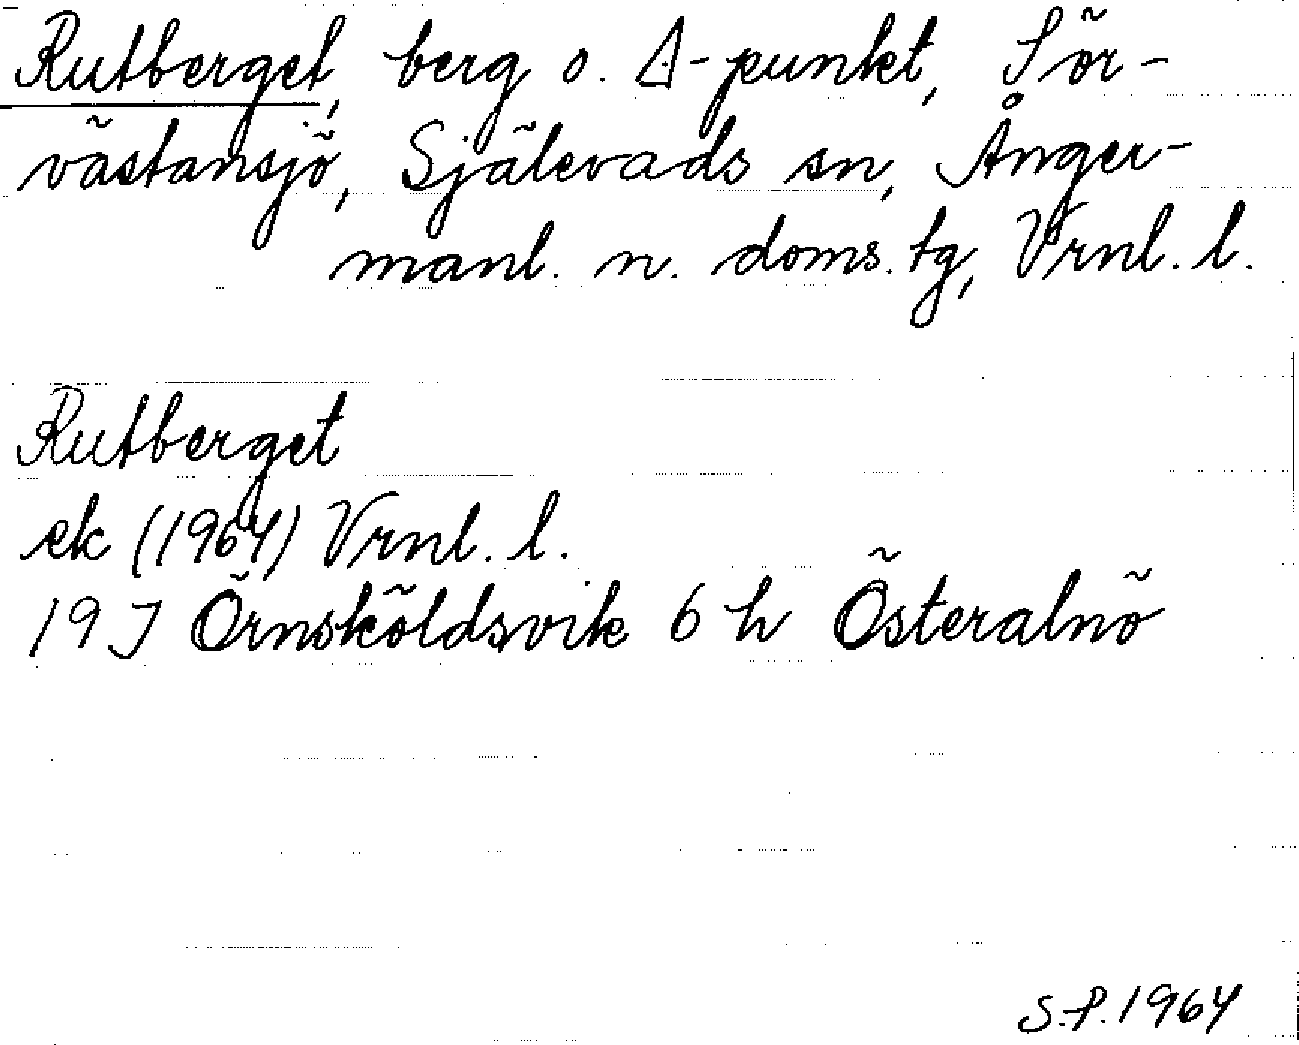 Rutberget, berg o. Δ-punkt, Sör-
västansjö, Själevads sn, Ånger-
manl. n. doms. tg, Vrnl. l.
Rutberget
ek (1964) Vrnl. l.
19 J Örnsköldsvik 6 h Österalnö
S.P. 1964